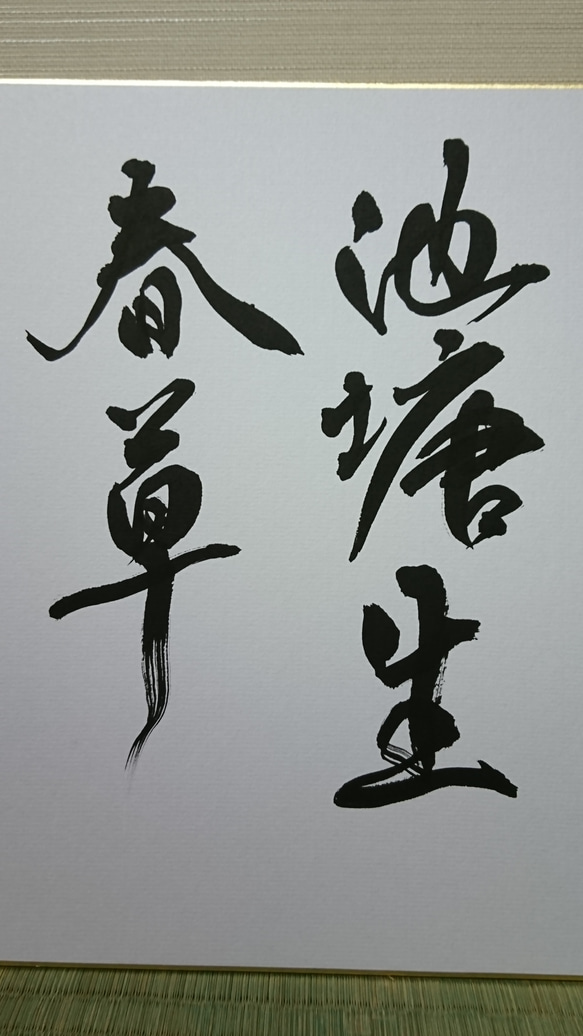 池塘生
春草